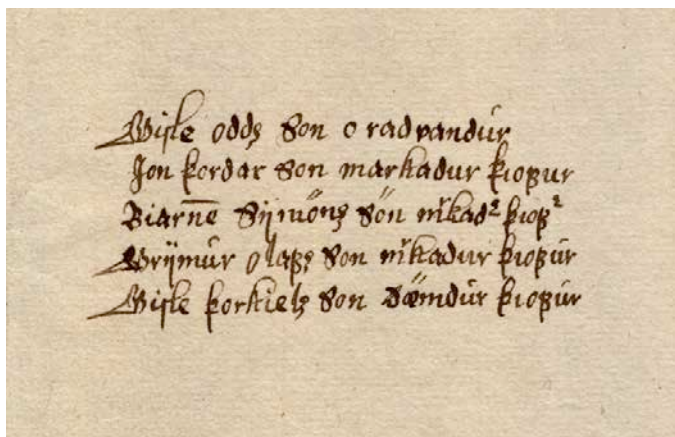 Gisle odds son oradvandur
Jon þordar son markadur þiofur
Biarne Sijmöns són mkad² þiof²
Grijmur olafs son mkadur þiofur
Gisle þorkiels son dæmdur þiofur